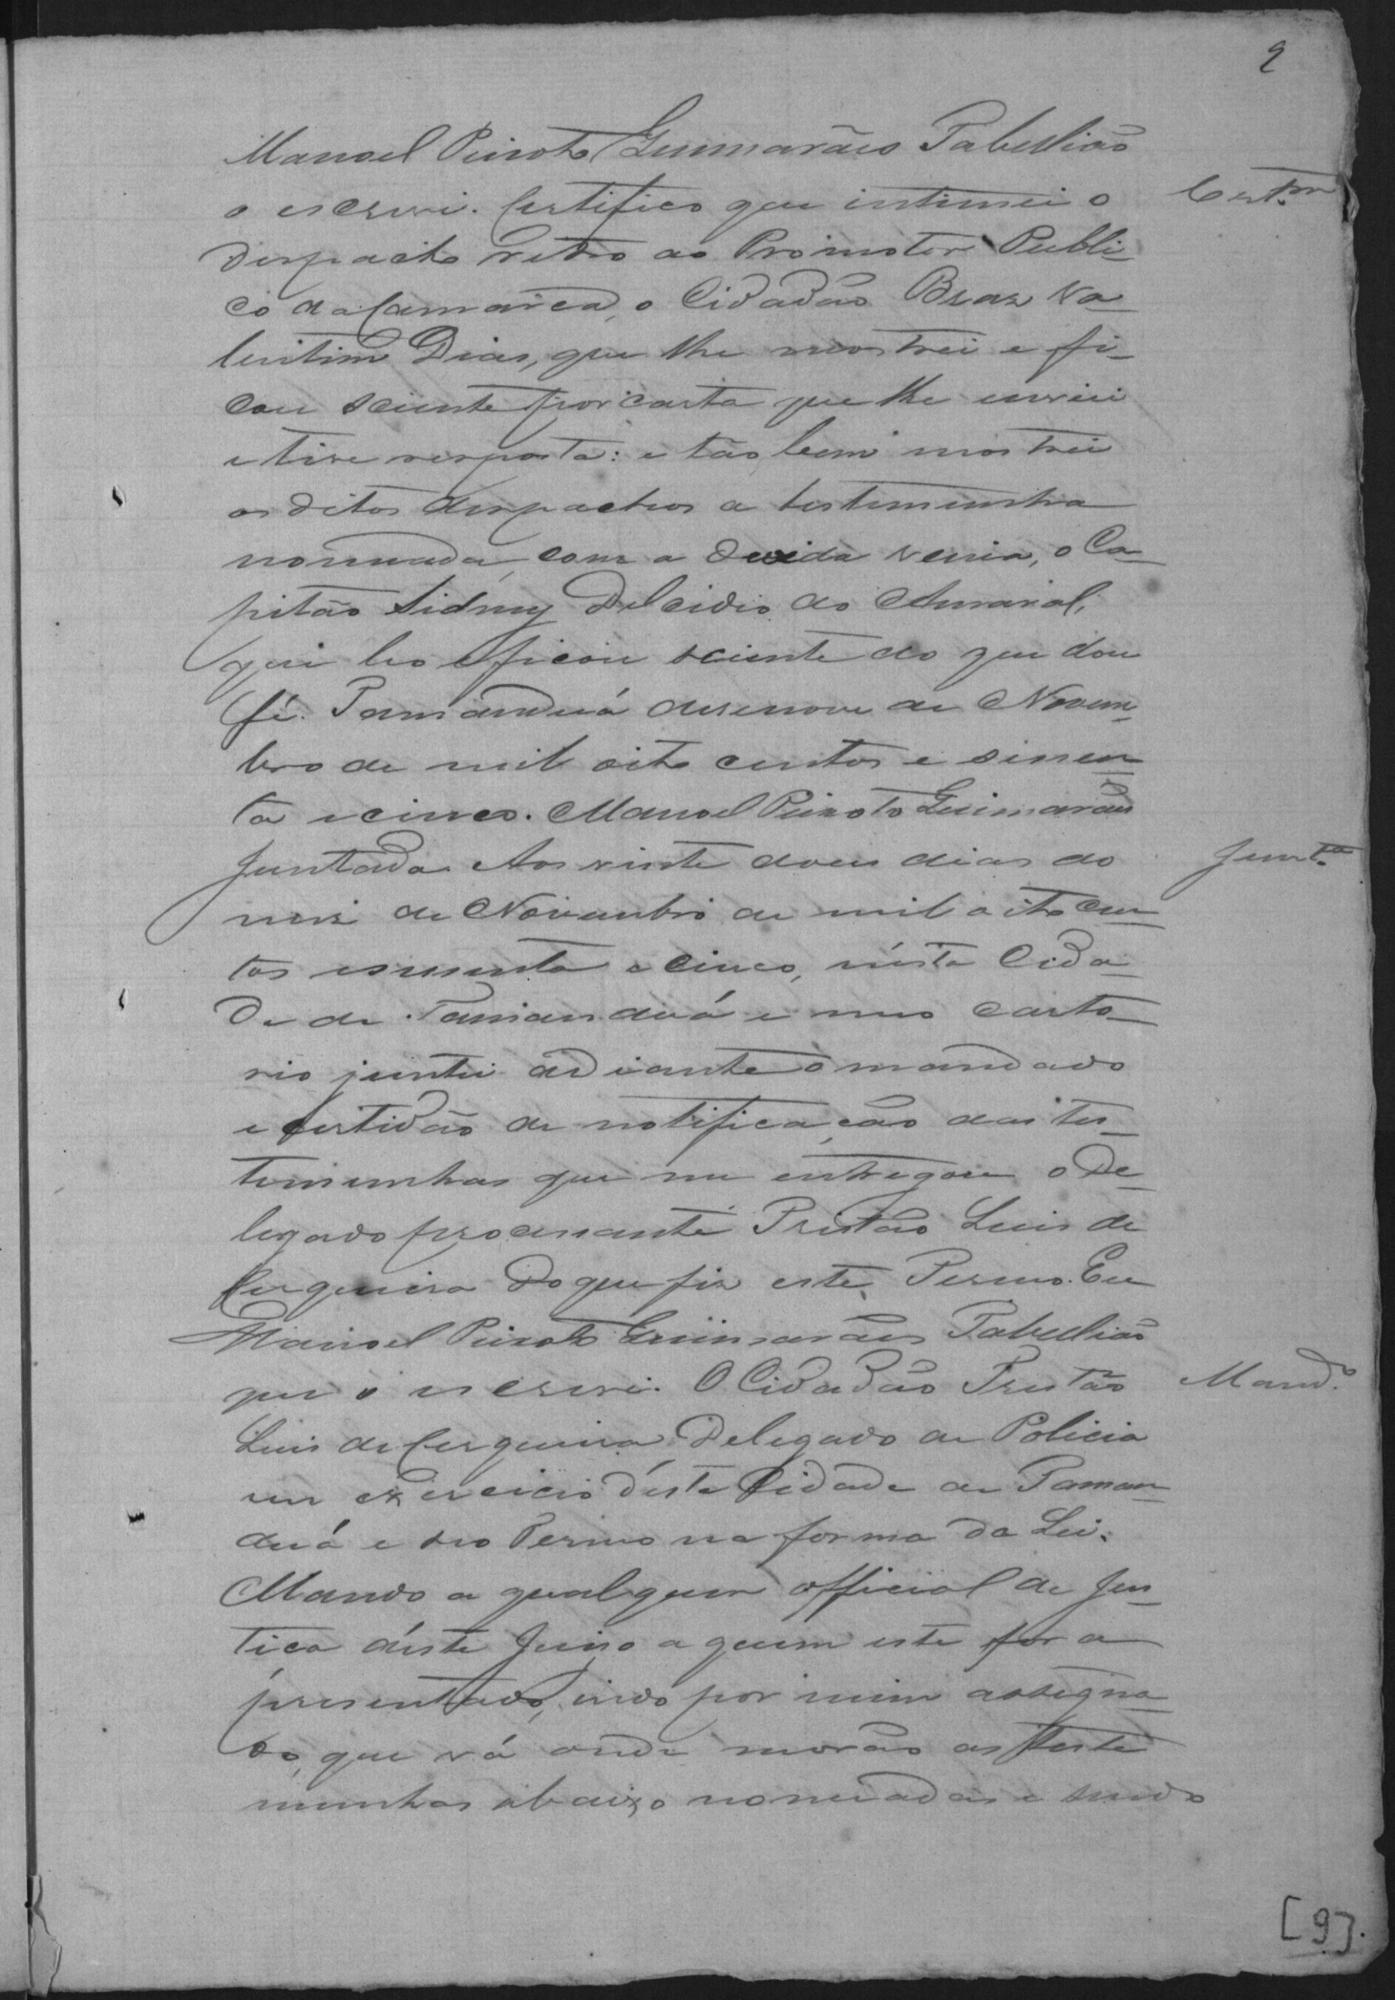 9
Manoel Peixoto Guimarães Tabellião
o escrevi. Certifico que intimei o
Certam
despacho retro ao Promotor Publi-
co da Camarca, o Cidadão Bras Va-
lentim Dias, que lhe mostrei e fi-
cou sciente por carta que lhe enviei
e tive resposta: e tão bem mostrei
os ditos despachos a testimunha
nomeada, com a devida venia, o Ca-
pitão Sidney Delcidio do Amaral,
que leo e ficou sciente do que dou
fé. Tamanduá desenove de Novem-
bro de mil oito centos e sessen-
ta e cinco. Manoel Peixoto Guimarães
Juntada Aos vinte dous dias do
Junta
mez de Novembro de mil oito cen-
tos esessenta e cinco, nésta Cida-
de de Tamanduá e meo carto-
rio juntei adiante o mandado
e certidão de notificação das tes-
temunhas que me entregou o De-
legado processante Tristão Luis de
Cerqueira do que fiz este Termo. Eu
Manoel Peixoto Guimarães Tabellião
que o escrevi. O Cidadão Tristão
Mando.
Luis de Cerqueira Delegado de Policia
em exercicio désta Cidade de Taman-
duá e seo Termo na forma da Lei.
Mando a qualquer official de Jus-
tica déste Juiso a quem este for a
presentado, indo por mim assigna-
do, que vá onde morão as teste
munhas abaixo nomeadas e sendo
[9].